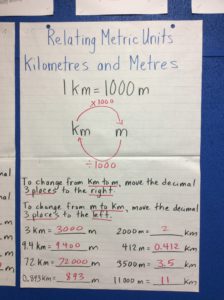 Relating Metric Units
Kilometres and Metres
1 km = 1000 m
x1000
km m
÷1000
To change from km to m, move the decimal
3 places to the right.
To change from m to km, move the decimal
3 places to the left.
3 km = 3000 m 2000 m = 2 km
9.4 km = 9400 m 412 m = 0.412 km
72 km = 72000 m 3500 m = 3.5 km
0.893 km = 893 m 11000 m = 11 km